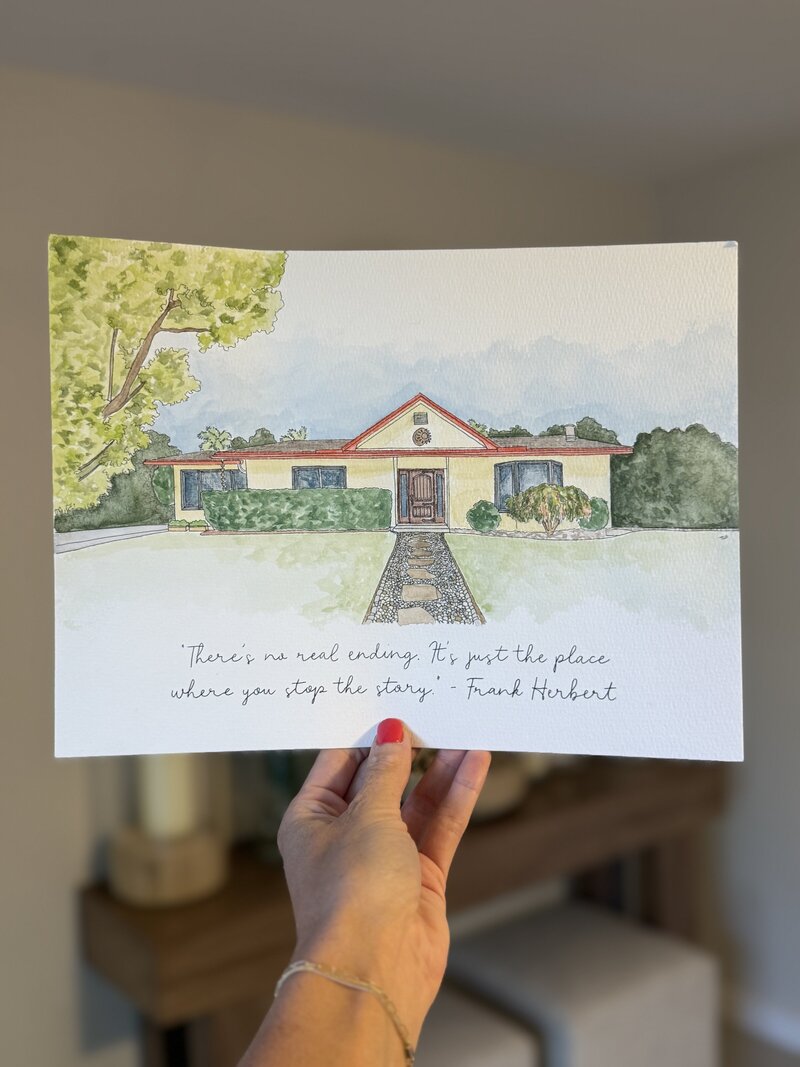 "There's no real ending. It's just the place
where you stop the story." - Frank Herbert